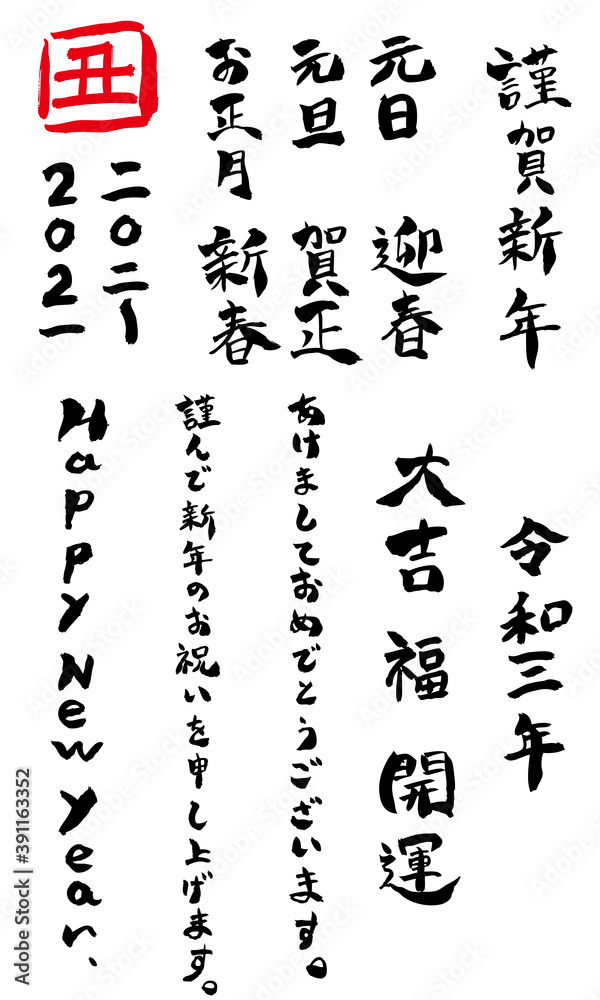 謹賀新年
元日
迎春
元旦
賀正
お正月
新春
丑
二〇二一
2021
令和三年
大吉
福
開運
あけましておめでとうございます。
謹んで新年のお祝いを申し上げます。
Happy New Year.
Adobe Stock | #391163352